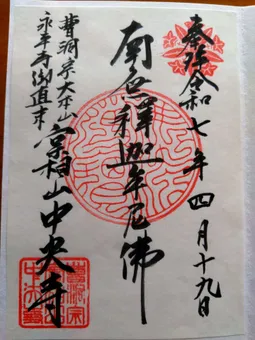 奉拝令和七年四月十九日
南無釋迦牟尼佛
曹洞宗大本山
永平寺御直末
宗相山中央寺